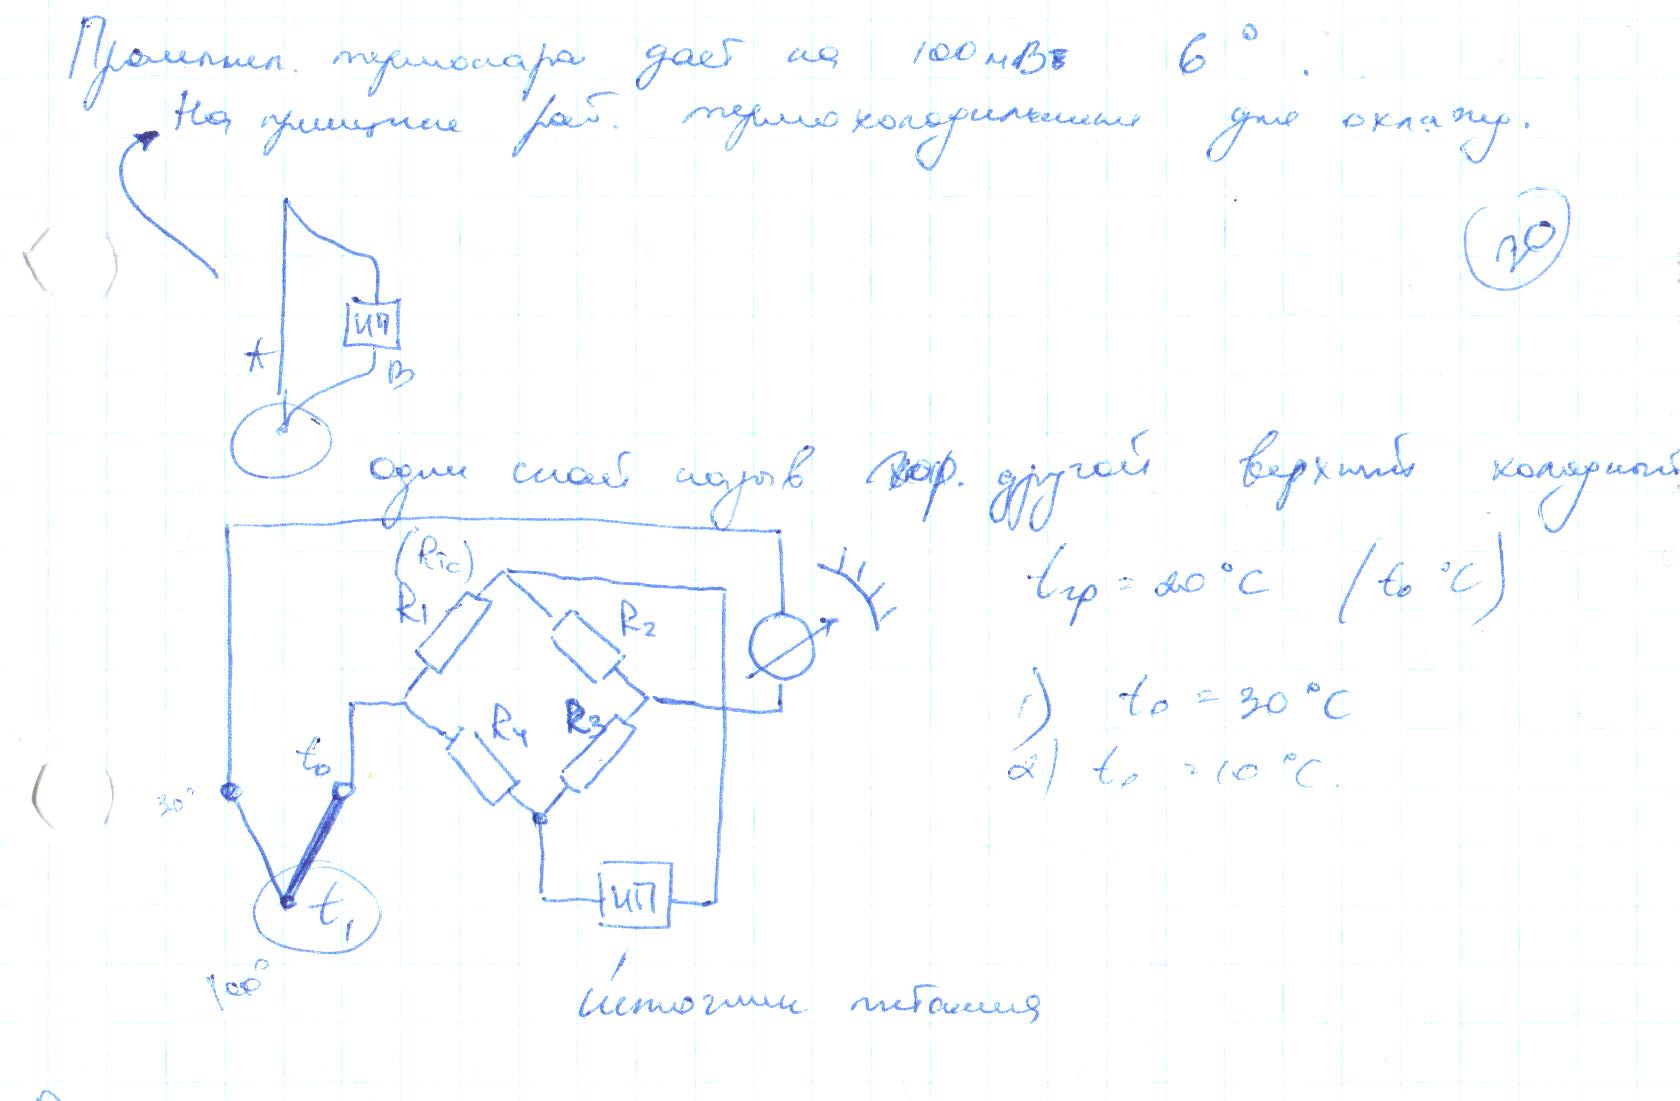 Промышл. термопара даёт на 100 мВ 6°.
На принципе раб. термохолодильник для охлажд.
20
ИП
A
B
один спай назыв гор. другой верхний холодный
(Rто)
R1
R2
tгр = 20°C (t₀ °C)
1) t₀ = 30°C
R4
R3
t₀
2) t₀ = 10°C.
30°
ИП
t₁
100°
источник питания